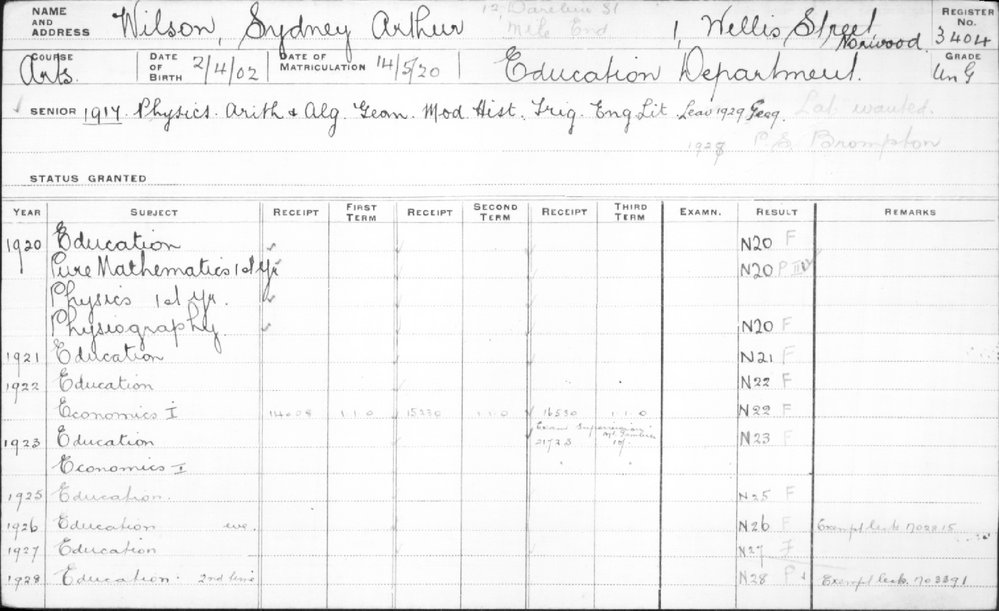 NAME AND ADDRESS Wilson, Sydney Arthur 12 St Mile End 1, Wellis Street, Norwood. REGISTER No. 3404
COURSE Arts. DATE OF BIRTH 2/4/02 DATE OF MATRICULATION 14/5/20 Education Department. GRADE Un G
SENIOR 1917. Physics. Arith & Alg. Geom. Mod Hist. Trig. Eng Lit. Leav 1929 Geog. Lat. wanted.
P.S. Brompton
STATUS GRANTED
YEAR SUBJECT RECEIPT FIRST TERM RECEIPT SECOND TERM RECEIPT THIRD TERM EXAMN. RESULT REMARKS
1920 Education ✓ N20 F
Pure Mathematics 1st Yr ✓ N20 P III
Physics 1st Yr. ✓
Physiography ✓ N20 F
1921 Education N21 F
1922 Education N22 F
Economics I 14008 1 1 0 15230 1 1 0 16530 1 1 0 N22 F
Exam Supervision
1923 Education 21723 10/- N23 F
Economics I
1925 Education. N25 F
1926 Education eve. N26 F Exempt lects. 702215
1927 Education N27 F
1928 Education. 2nd time N28 P Exempt lects. 703391